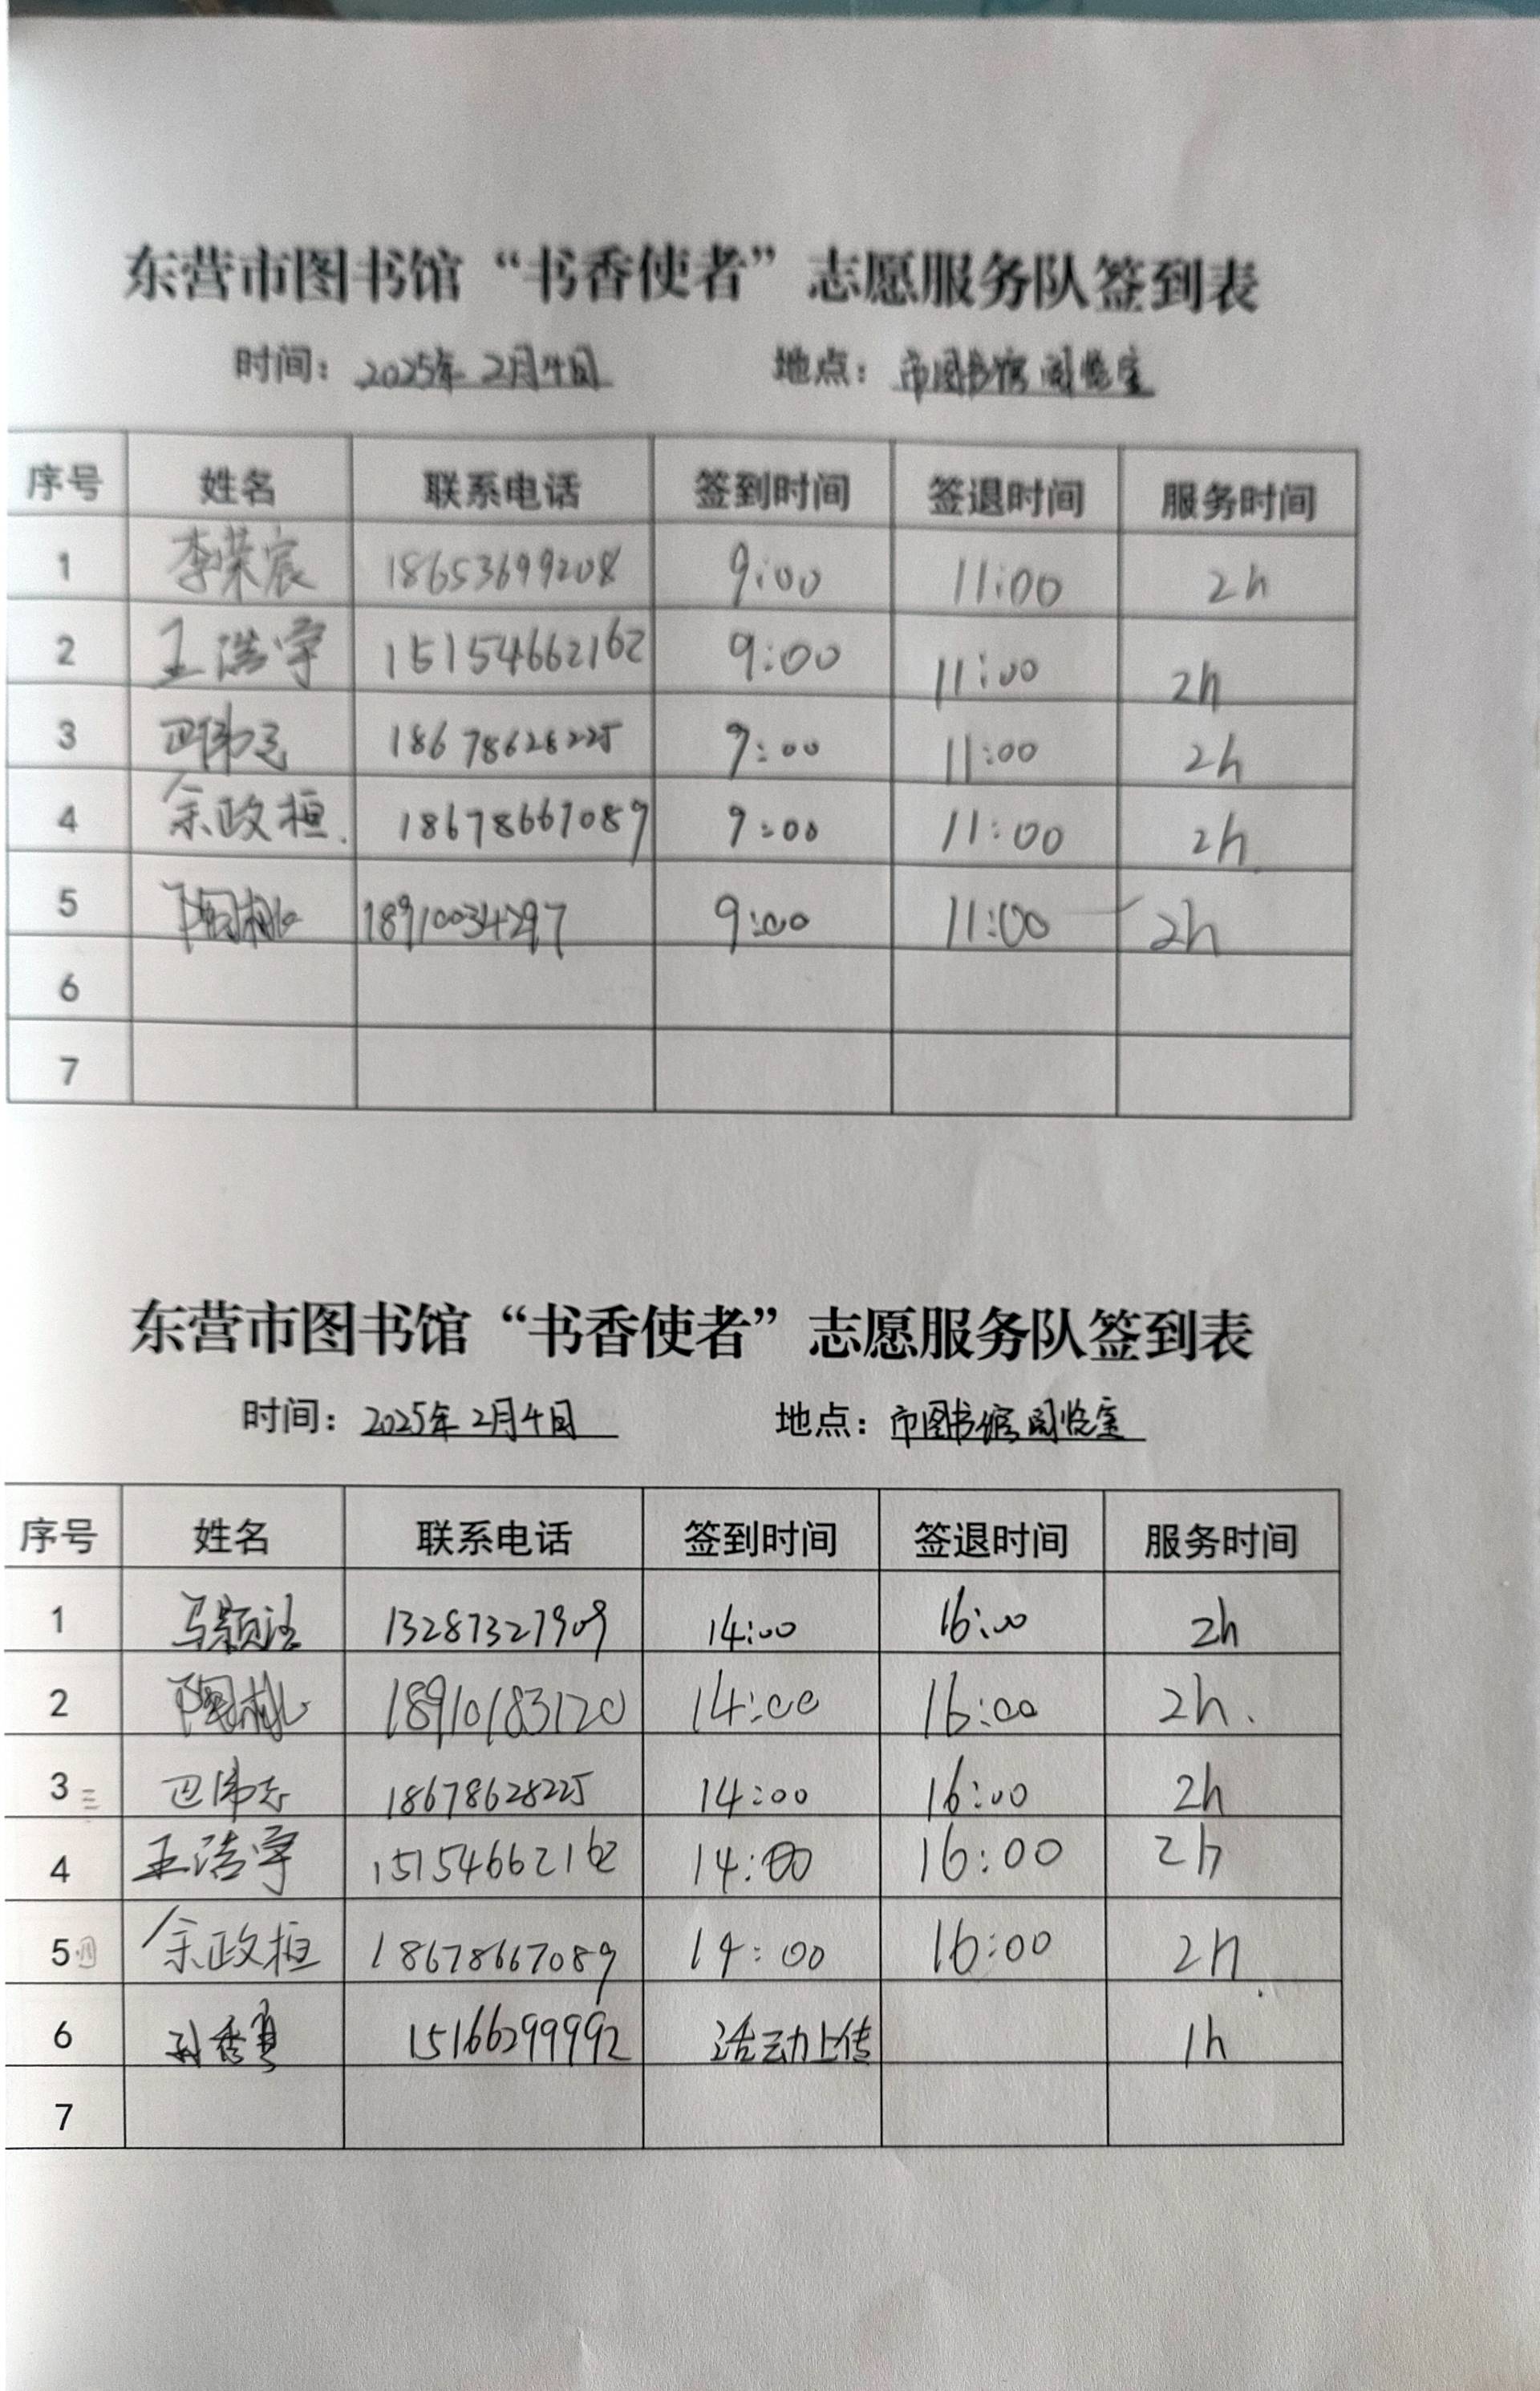 东营市图书馆“书香使者”志愿服务队签到表
时间：2025年2月4日 地点：市图书馆阅览室
序号 姓名 联系电话 签到时间 签退时间 服务时间
1 李荣宸 18653699208 9:00 11:00 2h
2 王浩宇 15154662162 9:00 11:00 2h
3 18678628225 9:00 11:00 2h
4 余政桓 18678667089 9:00 11:00 2h
5 18910034297 9:00 11:00 2h
6
7
东营市图书馆“书香使者”志愿服务队签到表
时间：2025年2月4日 地点：市图书馆阅览室
序号 姓名 联系电话 签到时间 签退时间 服务时间
1 13287327909 14:00 16:00 2h
2 18910183120 14:00 16:00 2h.
3 三 18678628225 14:00 16:00 2h
4 王浩宇 15154662162 14:00 16:00 2h
5 四 余政桓 18678667089 14:00 16:00 2h
6 15166299992 活动上传 1h
7